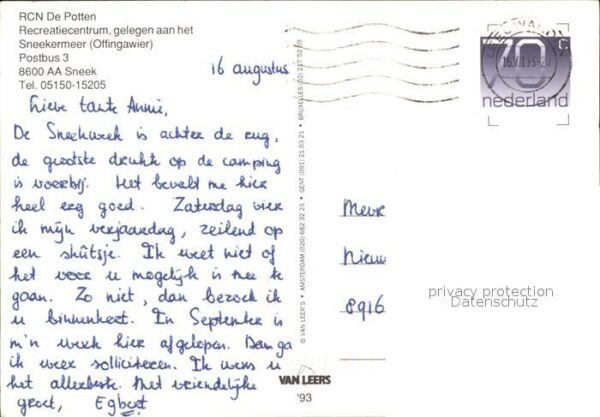 RCN De Potten
Recreatiecentrum, gelegen aan het
Sneekermeer (Offingawier)
Postbus 3
8600 AA Sneek
Tel. 05150-15205
16 augustus
Lieve tante Annie,
De Sneekweek is achter de rug,
de grootste drukte op de camping
is voorbij. Het bevalt me hier
heel erg goed. Zaterdag vier
ik mijn verjaardag, zeilend op
een skûtsje. Ik weet niet of
het voor u mogelijk is mee te
gaan. Zo niet, dan bezoek ik
u binnenkort. In September is
m'n werk hier afgelopen. Dan ga
ik weer solliciteren. Ik wens u
het allerbeste. Met vriendelijke
groet, Egbert
© VAN LEER'S • AMSTERDAM (020) 682 32 23 • GENT (091) 21.03.21 • BRUXELLES (02) 217 52 05
VAN LEERS
'93
70 c
nederland
Mevr
Nieuw
8916
privacy protection
Datenschutz